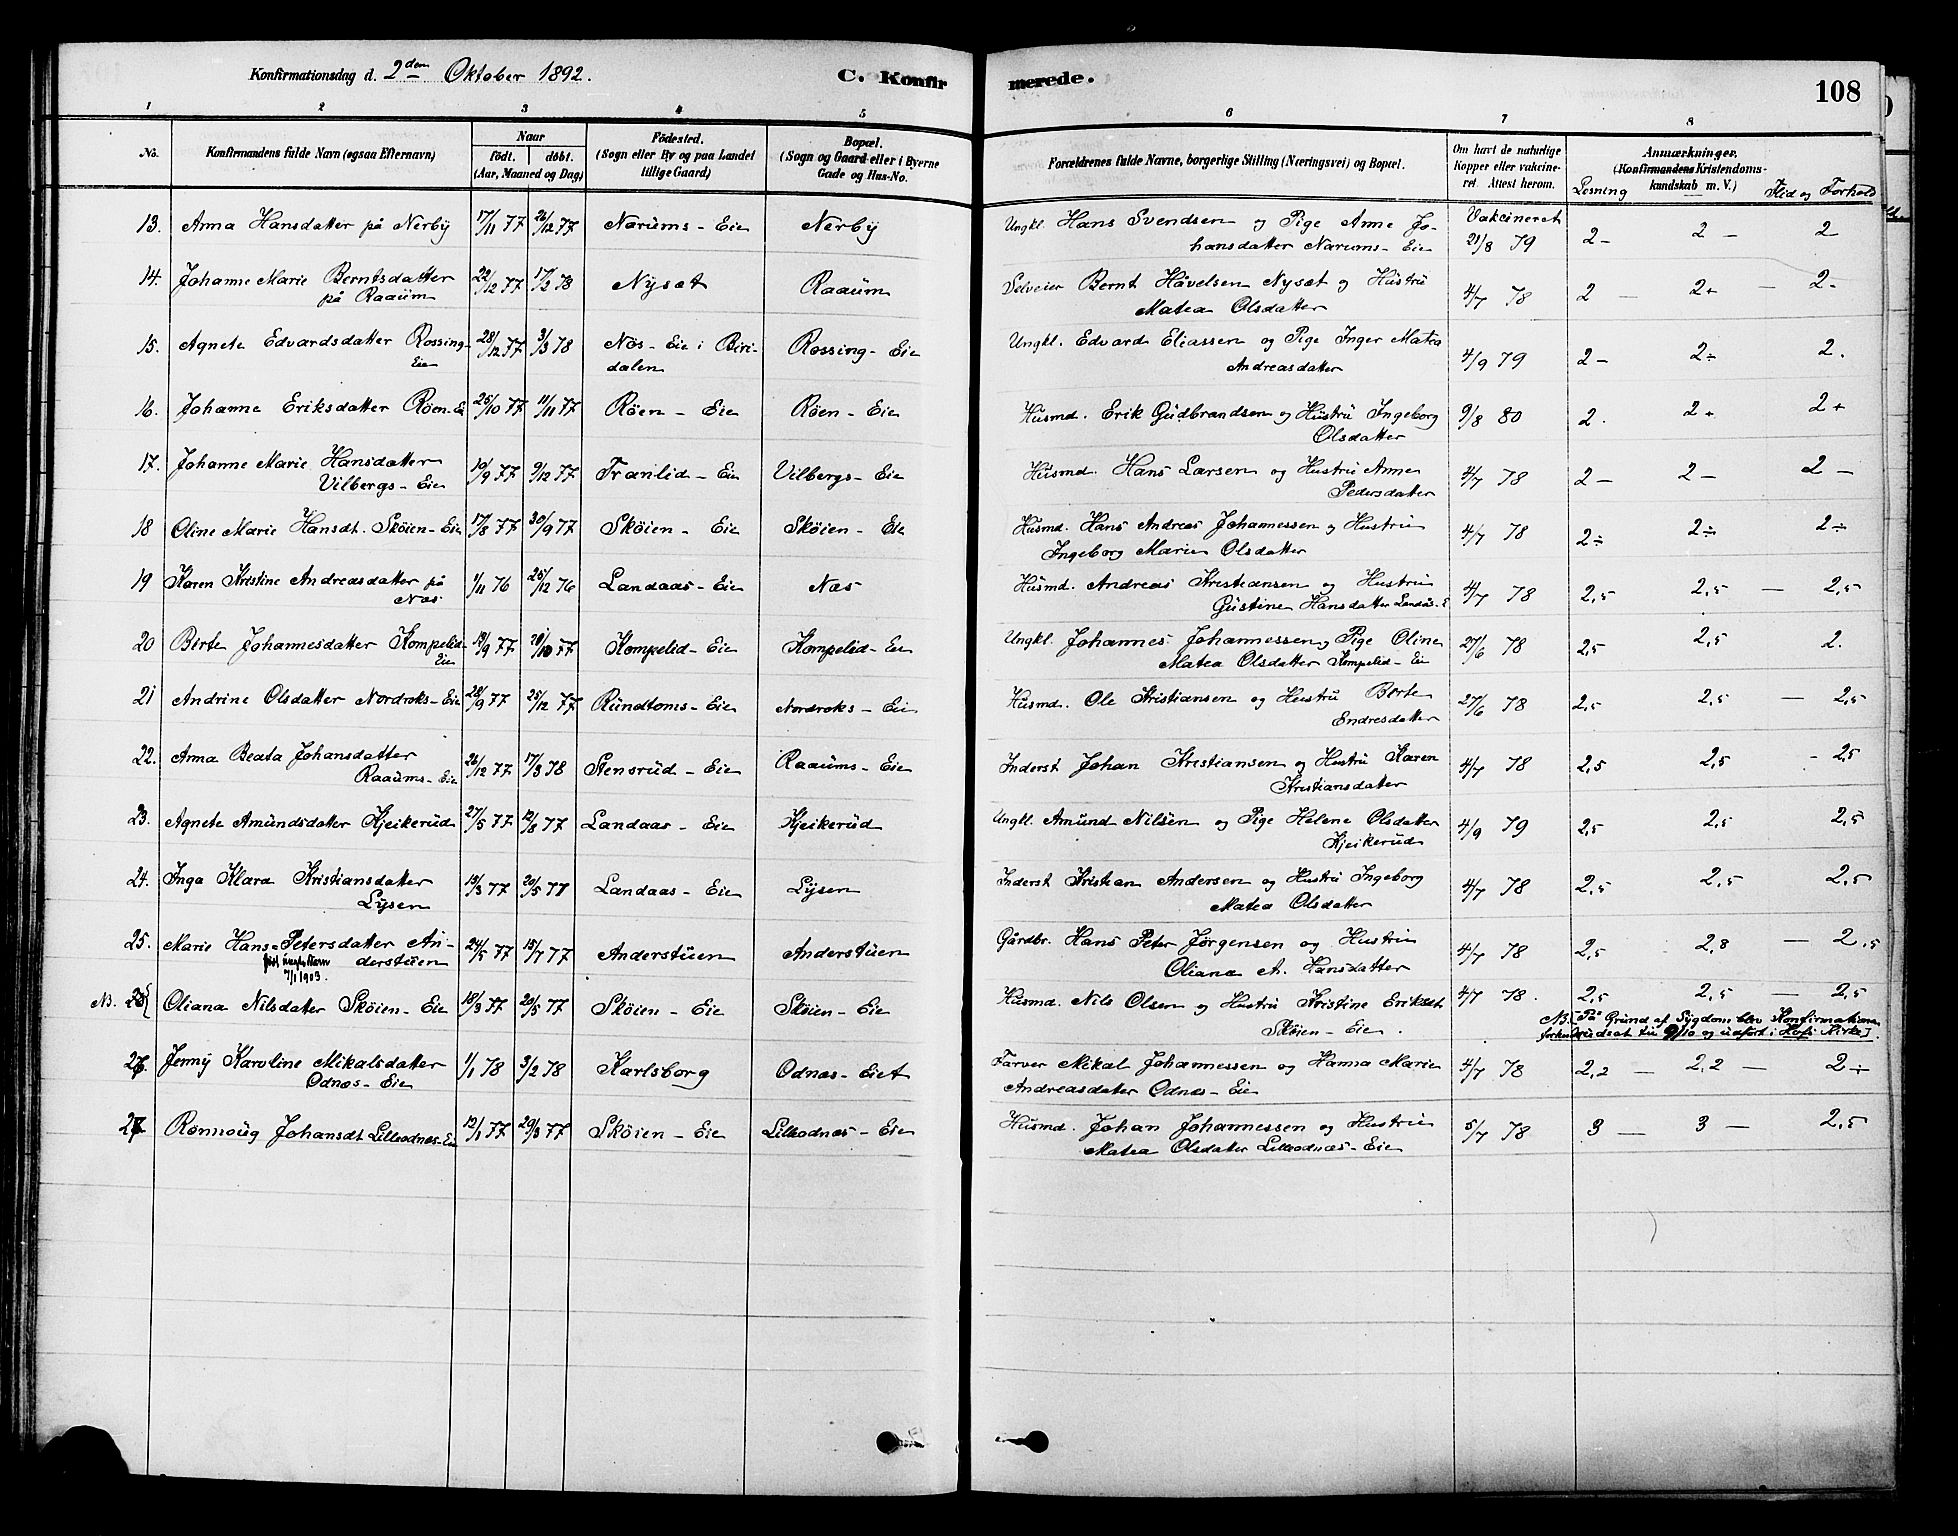 Konfirmationsdag d. 2den Oktober 1892.
C. Konfirmerede.
108
1 2 3 4 5 6 7 8
No.
Konfirmandens fulde Navn (ogsaa Efternavn)
Naar
født. døbt.
(Aar, Maaned og Dag)
Födested.
(Sogn eller By og paa Landet
tillige Gaard)
Bopæl.
(Sogn og Gaard eller i Byerne
Gade og Hus-No.
Forældrenes fulde Navne, borgerlige Stilling (Næringsvei) og Bopæl.
Om havt de naturlige
Kopper eller vakcine-
ret. Attest herom.
Anmærkninger.
(Konfirmandens Kristendoms-
kundskab m. V.)
Lesning
Flid og Forhold
13. Anna Hansdatter på Nerby 17/11 77 26/12 77 Narums-Eie Nerby Ungkl. Hans Svendsen og Pige Anne Jo- Vakcineret
hansdatter Narums-Eie 21/8 79 2- 2- 2
14. Johanne Marie Berntsdatter 22/12 77 17/2 78 Nysæt Raaum Selveier Bernt Håvelsen Nysæt og Hustru 4/7 78 2 - 2+ - 2-
på Raaum Matea Olsdatter
15. Agnete Edvardsdatter Rossing- 28/12 77 3/3 78 Næs-Eie i Biri- Rossing-Eie Ungkl. Edvard Eliassen og Pige Inger Matea 4/9 79 2- 2÷ 2.
Eie dalen Andreasdatter
16. Johanne Eriksdatter Röen-Ei 25/10 77 11/11 77 Röen-Eie Röen-Eie Husmd. Erik Gudbrandsen og Hustru Ingeborg 9/8 80 2. 2+ 2+
Olsdatter
17. Johanne Marie Hansdatter 10/9 77 9/12 77 Tranlid-Eie Vilbergs-Eie Husmd. Hans Larsen og Hustru Anne 4/7 78 2- 2- 2-
Vilbergs-Eie Pedersdatter
18 Oline Marie Hansdt. Sköien-Eie 17/8 77 30/9 77 Sköien-Eie Sköien-Eie Husmd. Hans Andreas Johannessen og Hustru 4/7 78 2÷ 2÷ 2÷
Ingeborg Marie Olsdatter
19 Karen Kristine Andreasdatter på 1/11 76 25/12 76 Landaas-Eie Næs Husmd. Andreas Kristiansen og Hustru 4/7 78 2,5 2,5 - 2,5
Næs Gustine Hansdatter Landås-E
20 Berte Johannesdatter Kompelid- 19/9 77 28/10 77 Kompelid-Eie Kompelid-Eie Ungkl. Johannes Johannessen og Pige Oline 27/6 78 2,5 2,5 2.
Eie Matea Olsdatter Kompelid-Eie
21 Andrine Olsdatter Nordroks-Eie 28/9 77 25/12 77 Rundtoms-Eie Nordroks-Eie Husmd. Ole Kristiansen og Hustru Berte 27/6 78 2,5 2,5 - 2,5
Endresdatter
22. Anna Beata Johansdatter 26/12 77 17/3 78 Stensrud-Eie Raaums-Eie Inderst Johan Kristiansen og Hustru Karen 4/7 78 2,5 2,5 - 2,5
Raaums-Eie Kristiansdatter
23. Agnete Amundsdatter Kjeikerud 27/5 77 12/8 77 Landaas-Eie Kjeikerud Ungkl. Amund Nilsen og Pige Helene Olsdatter 4/9 79 2,5 2,5 2,5
Kjeikerud
24. Inga Klara Kristiansdatter 19/3 77 20/5 77 Landaas-Eie Lysen Inderst Kristian Andersen og Hustru Ingeborg 4/7 78 2,5 2,5 2,5
Lysen Matea Olsdatter
25. Marie Hans-Petersdatter An- 24/5 77 15/7 77 Anderstuen Anderstuen Gårdbr. Hans Peter Jörgensen og Hustru 4/7 78 2,5 2,8 - 2,5
derstuen Oliana A. Hansdatter
7/1 1903.
NB. Oliana Nilsdatter Sköien-Eie 18/3 77 20/5 77 Sköien-Eie Sköien-Eie Husmd. Nils Olsen og Hustru Kristine Eriksdt 4/7 78. 2,5 2,5 - 2,5
Sköien-Eie. NB. På Grund af Sygdom blev Konfirmationen
udsat til 9/10 og udført i Hofs Kirke.
26. Jenny Karoline Mikalsdatter 1/1 78 3/2 78 Karlsborg Odnæs-Eiet Farver Mikal Johannessen og Hanna Marie 4/7 78 2,2 - 2,2 - 2÷
Odnæs-Eie Andreasdatter Odnæs-Eie
27 Rønnoug Johansdt. Lilleodnæs-Eie 12/1 77 29/3 77 Sköien-Eie Lilleodnæs-Eie Husmd. Johan Johannessen og Hustru 5/7 78 3 - 3 - 2,5
Matea Olsdatter Lilleodnæs-Eie